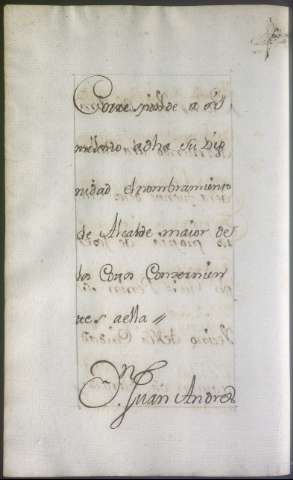 Corresponde a el
mesmo a dha su Dig
nidad el nombramiento
de Alcalde maior de
los Cotos Conzernien
tes aella //
Juan Andres